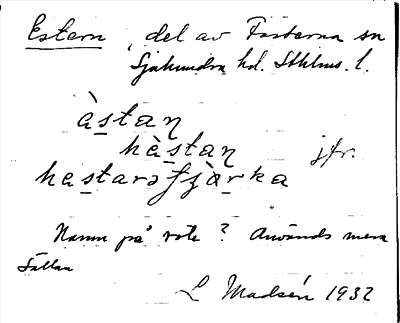 Estern, del av Fasterna sn
Sjuhundra hd. Sthlms. l.
àstaƞ
hàstaƞ jfr.
hastarəfjà̱rka
Namn på rote? Används mera
sällan
L Madsén 1932